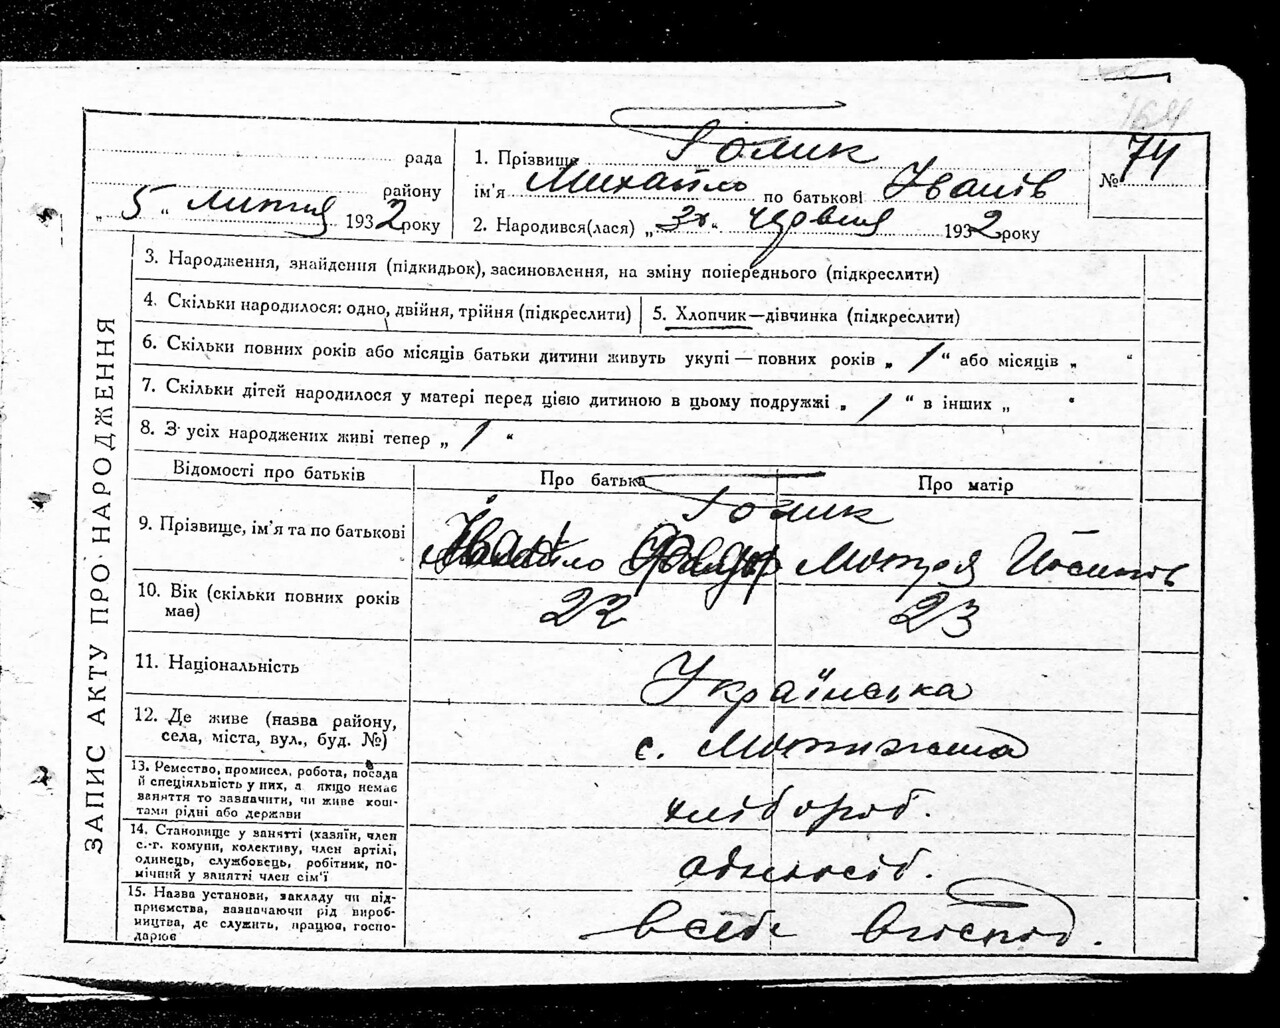 164
рада
району
„ 5 " Липня 1932 року
1. Прізвище Голик
ім'я Михайло по батькові Іванів
2. Народився(лася) „ " червня 1932 року
№ 74
ЗАПИС АКТУ ПРО НАРОДЖЕННЯ
3. Народження, знайдення (підкидьок), засиновлення, на зміну попереднього (підкреслити)
4. Скільки народилося: одно, двійня, трійня (підкреслити)
5. Хлопчик—дівчинка (підкреслити)
6. Скільки повних років або місяців батьки дитини живуть укупі — повних років „ 1 " або місяців „ "
7. Скільки дітей народилося у матері перед цією дитиною в цьому подружжі „ 1 " в інших „ "
8. З усіх народжених живі тепер „ 1 "
Відомості про батьків
Про батька
Про матір
9. Прізвище, ім'я та по батькові
Голик
Мотря Йосипів
10. Вік (скільки повних років
має)
22
23
11. Національність
Українська
12. Де живе (назва району,
села, міста, вул., буд. №)
с. Мотижина
13. Ремество, промисел, робота, посада
й спеціяльність у них, а якщо немає
заняття то зазначити, чи живе кош-
тами рідні або держави
хлібороб.
14. Становище у занятті (хазяїн, член
с.-г. комуни, колективу, член артілі,
одинець, службовець, робітник, по-
мічний у занятті член сім'ї
одноосіб.
15. Назва установи, закладу чи під-
приємства, зазначаючи рід вироб-
ництва, де служить, працює, госпо-
дарює
в себе в господ.